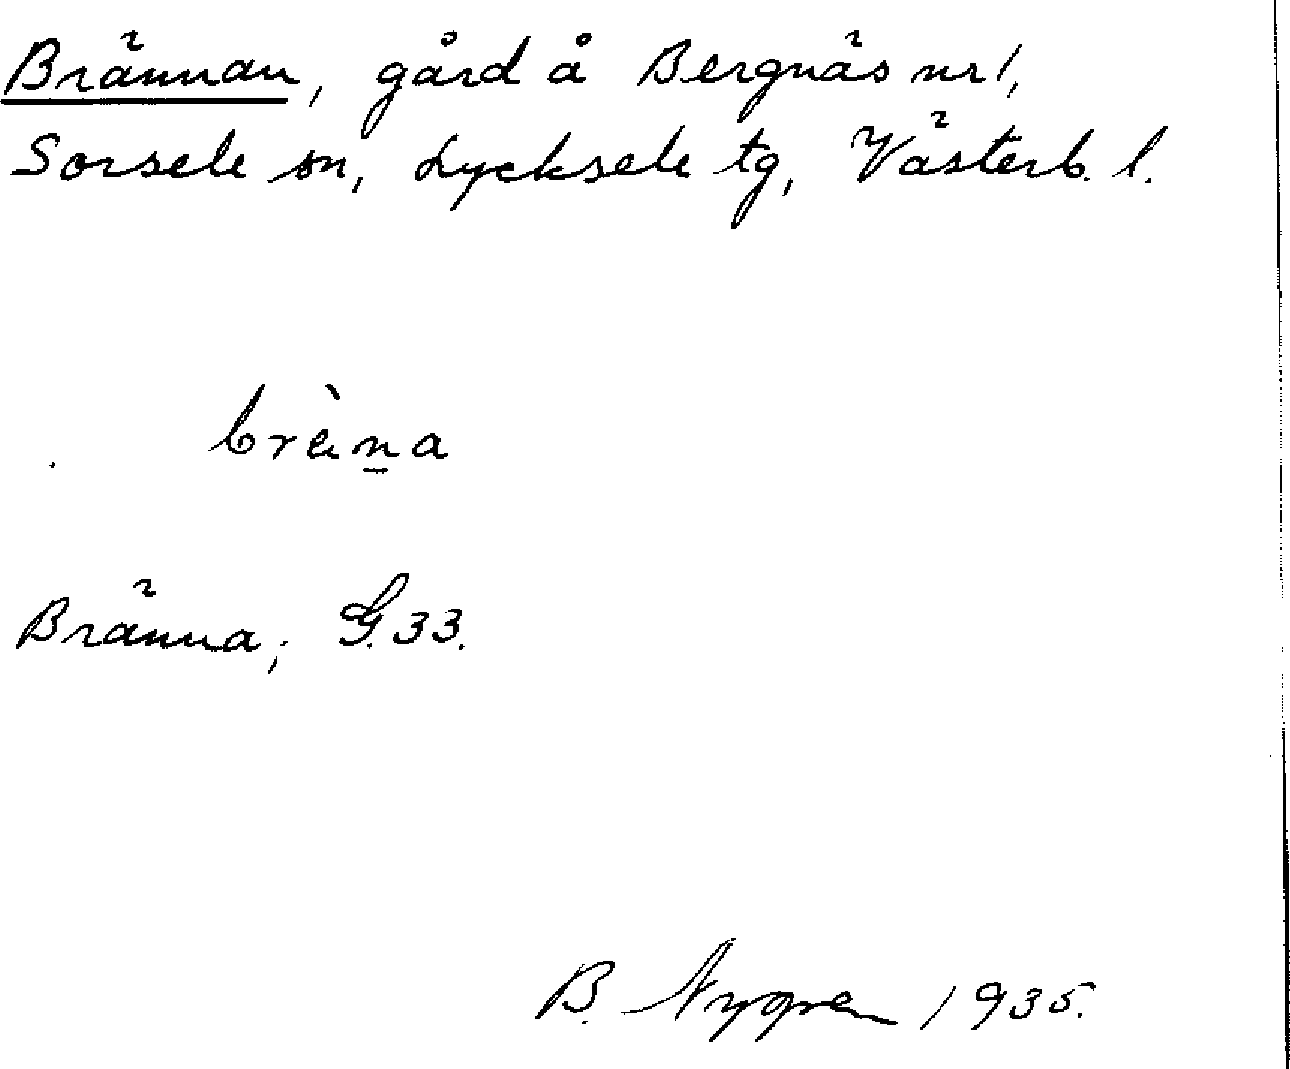 Brännan, gård å Bergnäs nr 1,
Sorsele sn, Lycksele tg, Västerb. l.
brèn̲a
Bränna, G. 33.
B. Nygren 1935.